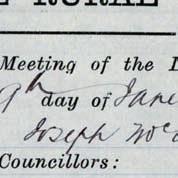 RURAL
Meeting of the
9th day of June
Joseph McC
Councillors: